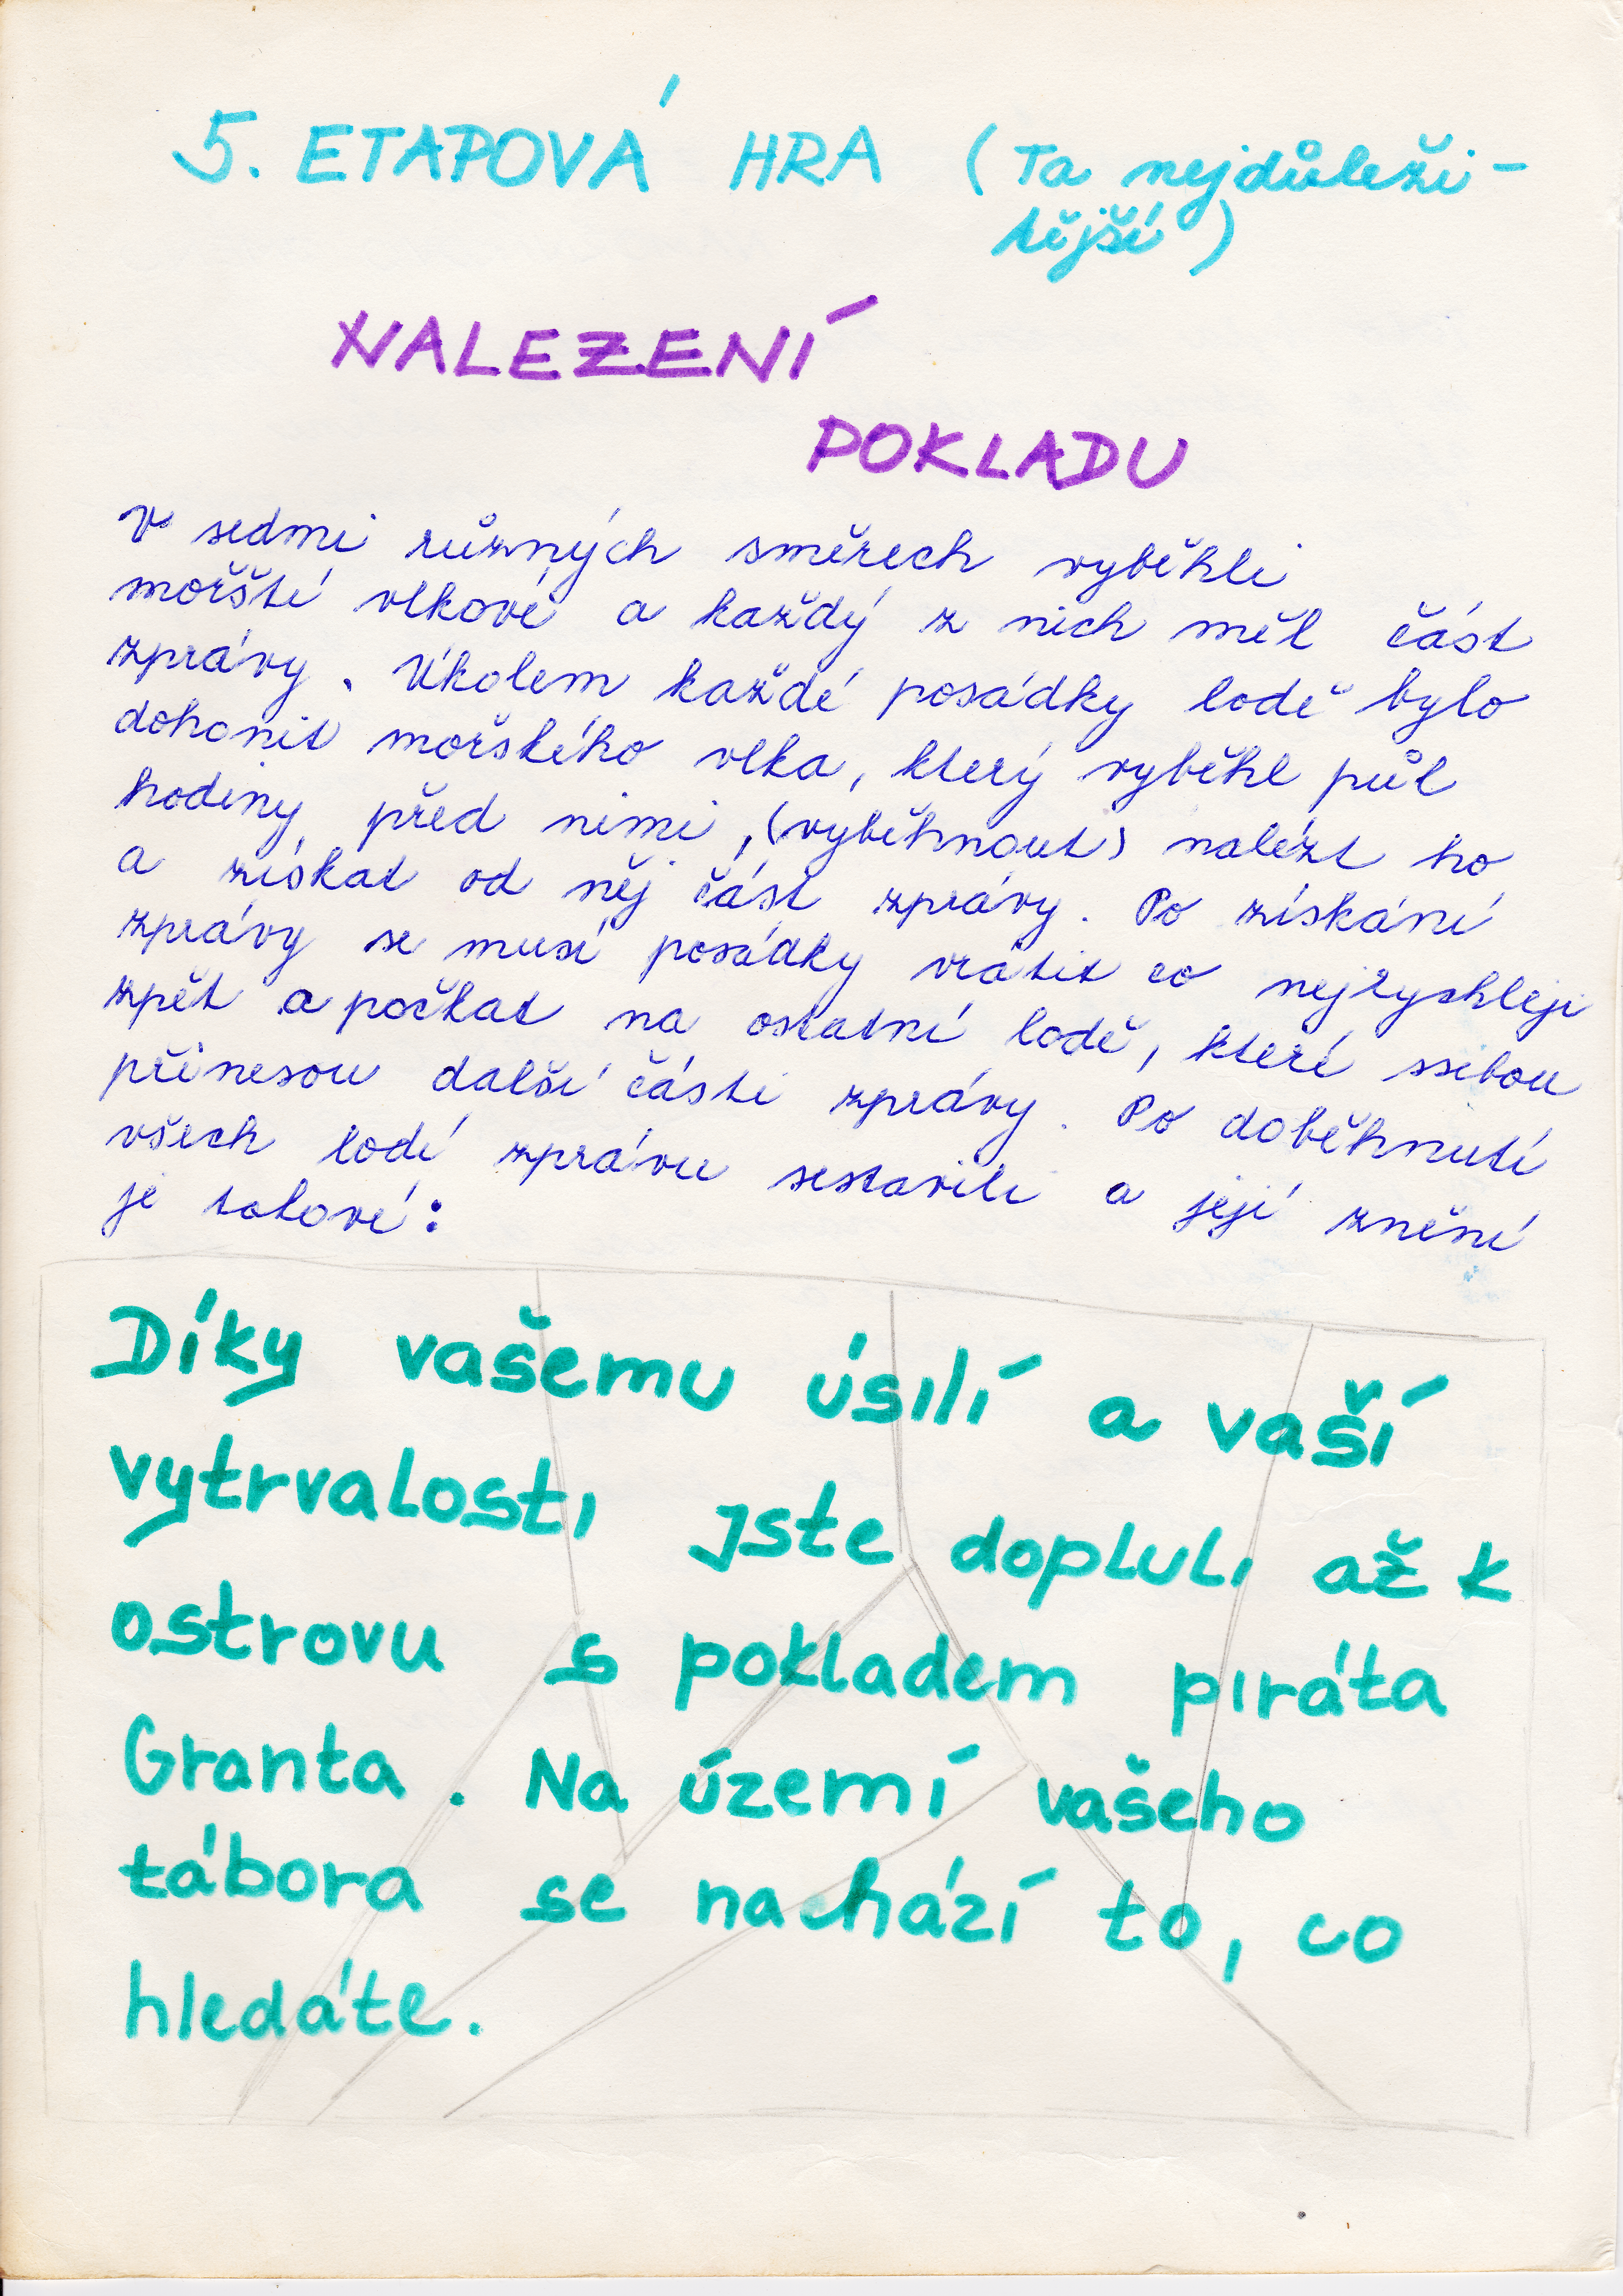 5. ETAPOVÁ HRA (Ta nejdůleži-
tější)
NALEZENÍ
POKLADU
V sedmi různých směrech vyběhli
mořští vlkové a každý z nich měl část
zprávy. Úkolem každé posádky lodě bylo
dohonit mořského vlka, který vyběhl půl
hodiny před nimi, (vyběhnout) nalézt ho
a získat od něj část zprávy. Po získání
zprávy se musí posádky vrátit co nejrychleji
zpět a počkat na ostatní lodě, které ssebou
přinesou další části zprávy. Po doběhnutí
všech lodí zprávu sestavili a její znění
je takové:
Díky vašemu úsilí a vaší
vytrvalosti jste dopluli až k
ostrovu s pokladem piráta
Granta. Na území vašeho
tábora se nachází to, co
hledáte.